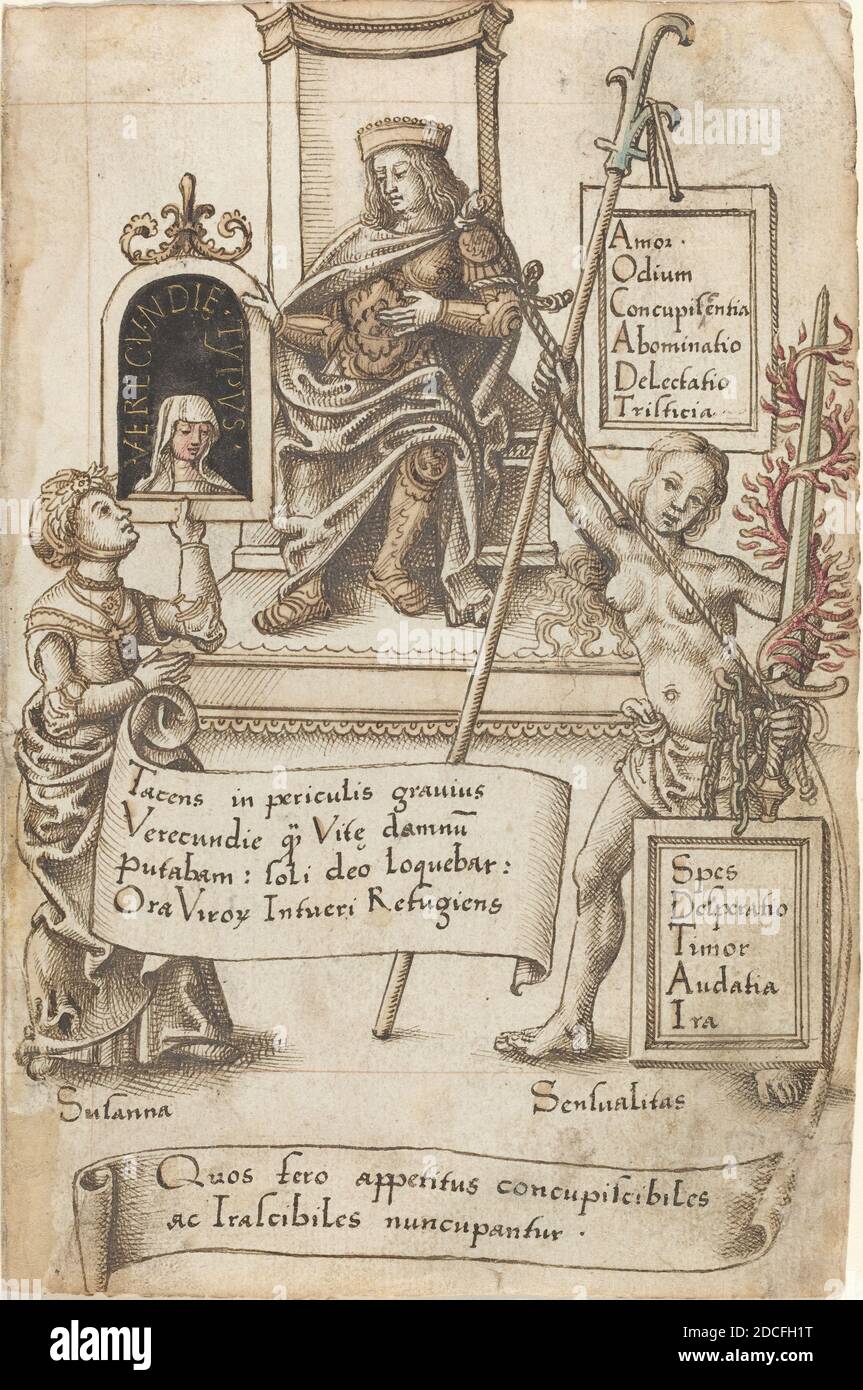 VERECUNDIĘ · TYPVS ·
Amor ·
Odium
Concupiscentia
Abominatio
Delectatio
Tristicia
Tacens in periculis grauius
Verecundie qꝫ Vitę damnū
Putabam : soli deo loquebar :
Ora Viroꝝ Intueri Refugiens
Spes
Desperatio
Timor
Audatia
Ira
Susanna
Sensualitas
Quos fero appetitus concupiscibiles
ac Irascibiles nuncupantur ·
alamy
Image ID: 2DCFH1T
www.alamy.com